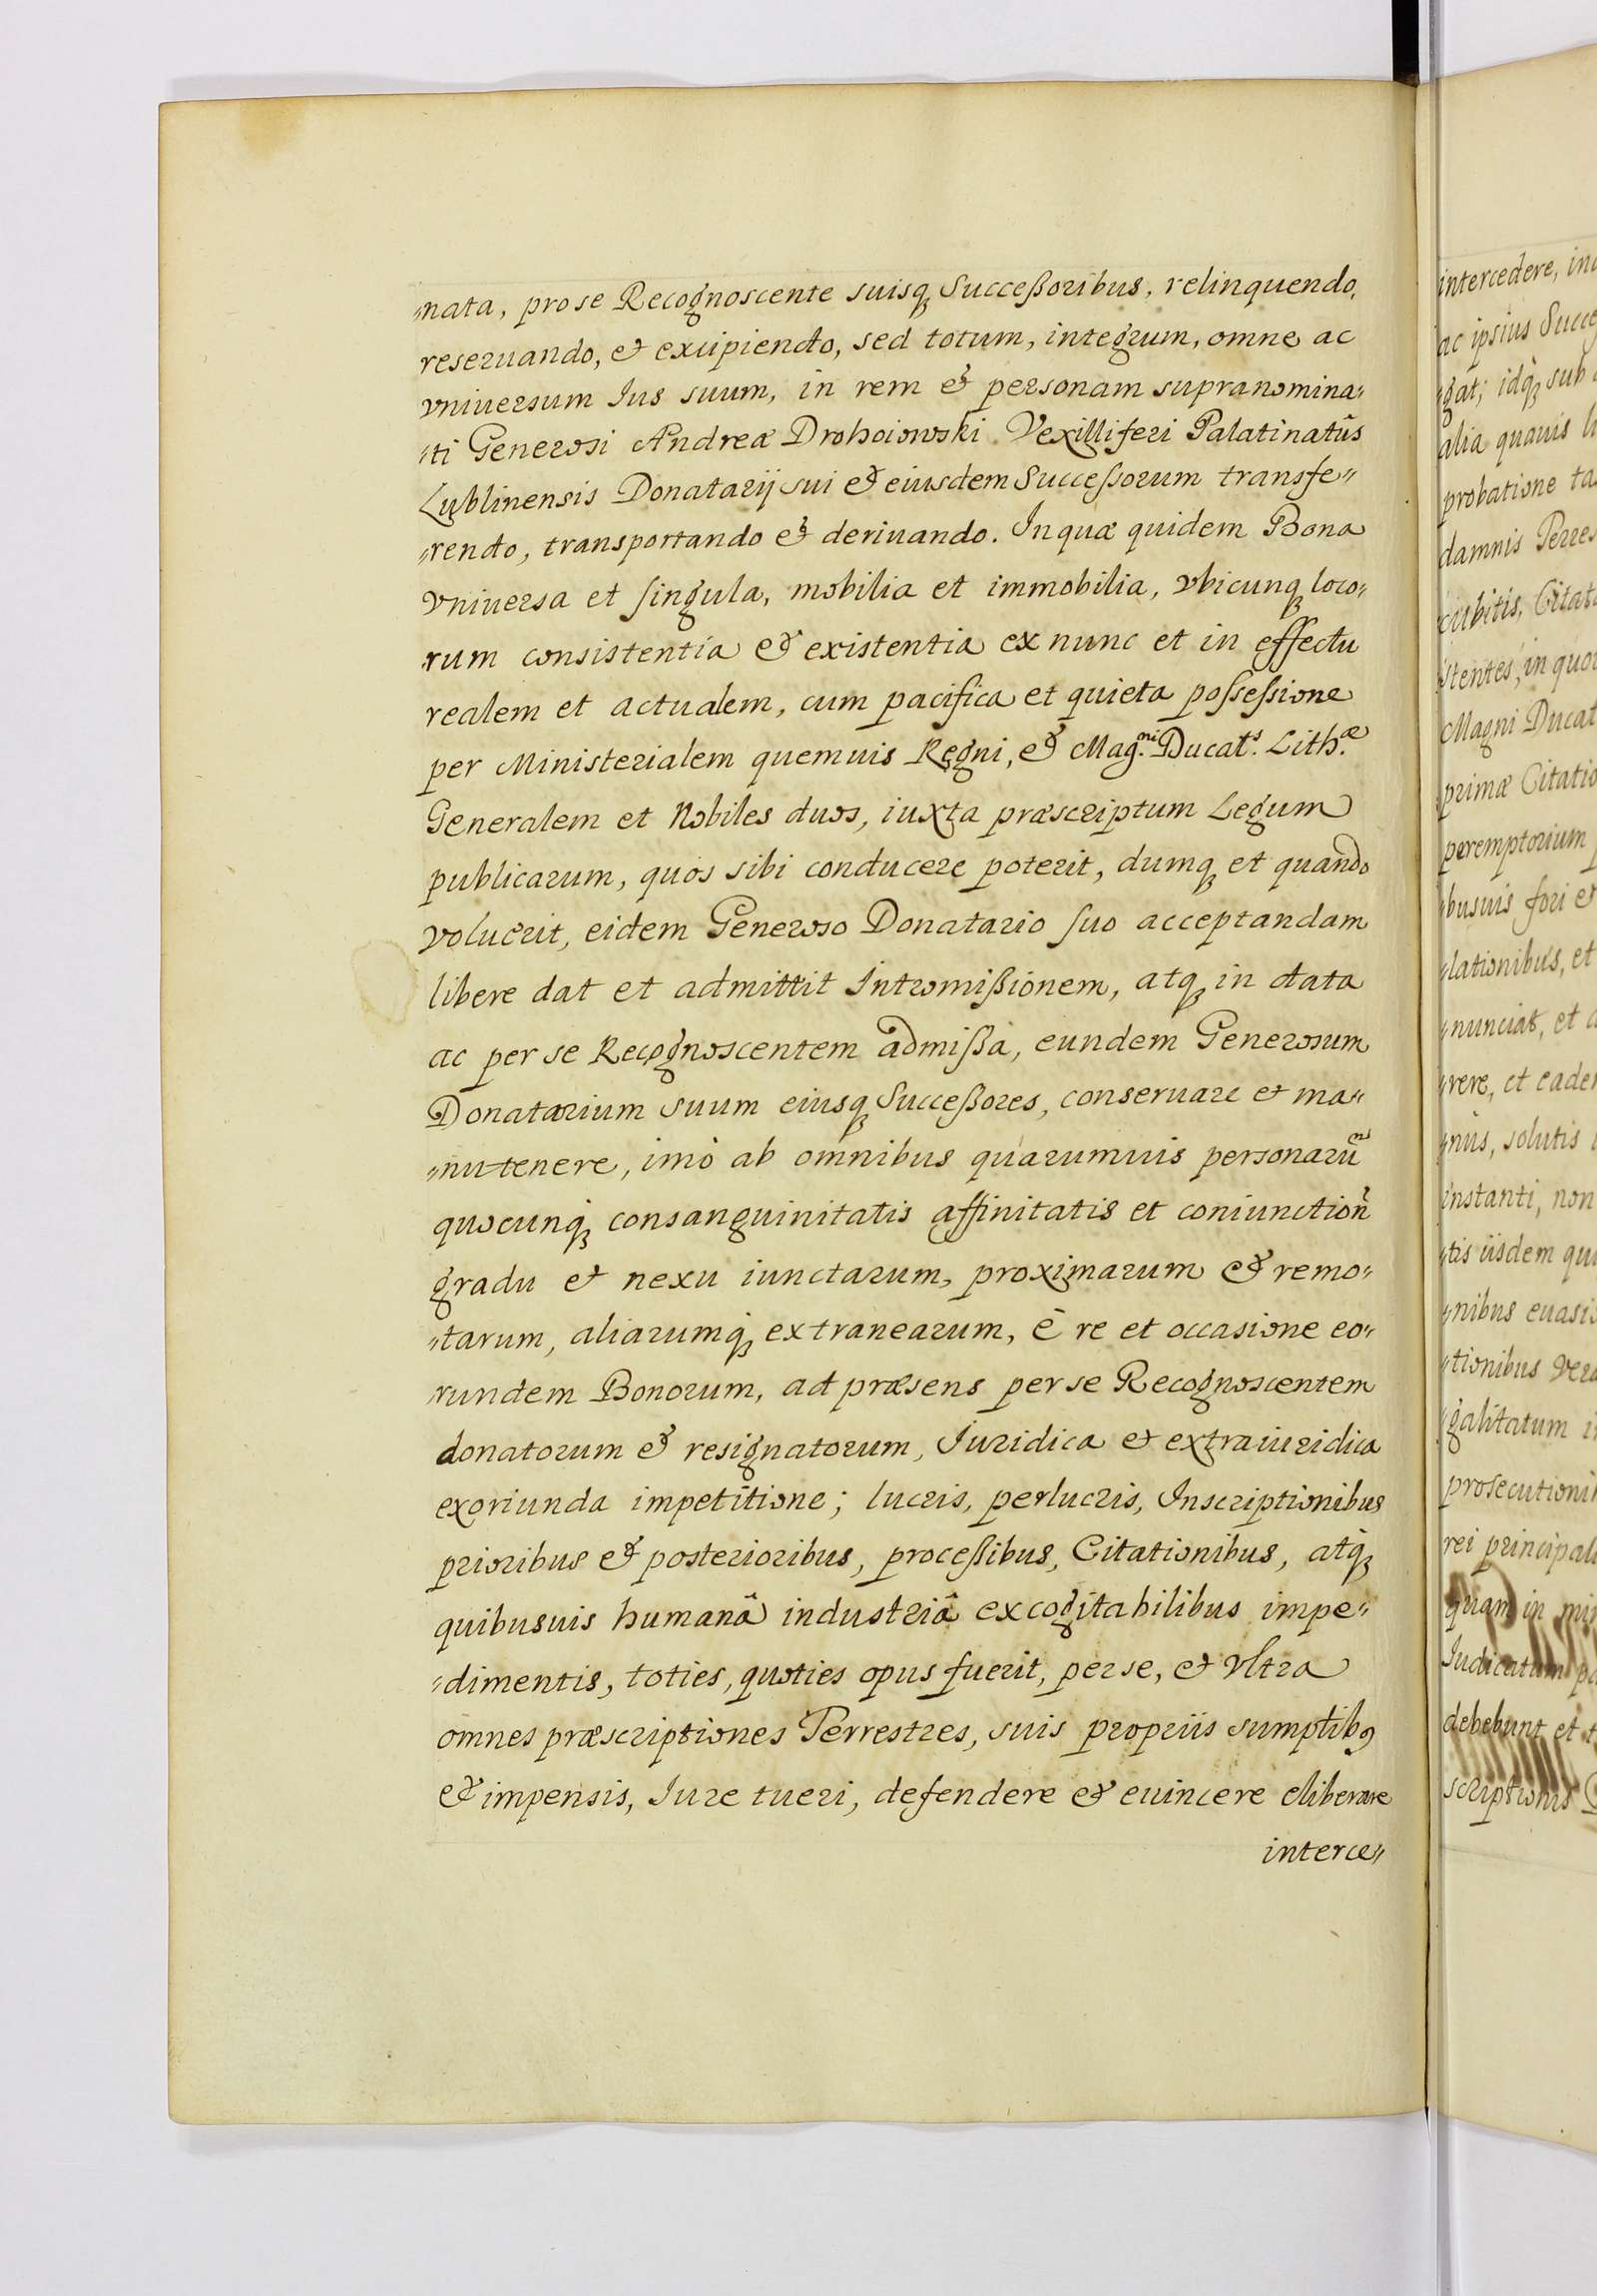 „nata, pro se Recognoscente suisq Succeßoribus, relinquendo,
reseruando, et excipiendo, sed totum, integrum, omne ac
vniuersum Ius suum, in rem & personam supranomina„
„ti Generosi Andreæ Drohoiowski Vexilliferi Palatinatûs
Lublinensis Donatarij sui & eiusdem Succeſsorum transfe„
„rendo, transportando & deriuando. In quæ quidem Bona
vniuersa et ſingula, mobilia et immobilia, vbicunq loco„
rum consistentia & existentia ex nunc et in effectu
realem et actualem, cum pacifica et quieta poſseſsione
per Ministerialem quemuis Regni, & Mag.ni Ducat.s Lith.æ
Generalem et Nobiles duos, iuxta præscriptum Legum
publicarum, quos sibi conducere poterit, dumq et quando
voluerit, eidem Generoso Donatario ſuo acceptandam
libere dat et admittit Intromißionem, atq in data
ac per se Recognoscentem admißa, eundem Generosum
Donatarium suum eiusq Succeßores, conseruare et ma„
„nutenere, imò ab omnibus quarumuis personarũ
quocunq consanguinitatis affinitatis et coniunction̄
gradu et nexu iunctarum, proximarum & remo„
„tarum, aliarumq extranearum, è re et occasione eo„
„rundem Bonorum, ad præsens per se Recognoscentem
donatorum & resignatorum, Iuridica et extraiuridica
exoriunda impetitione; lucris, perlucris, Inscriptionibus
prioribus & posterioribus, proceßibus, Citationibus, atq
quibusuis humanâ industriâ excogitabilibus impe„
„dimentis, toties, quoties opus fuerit, per se, et vltra
omnes præscriptiones Terrestres, suis propriis sumptib9
& impensis, Iure tueri, defendere & euincere eliberare
interce„
intercedere,
ac ipsius
„gat; idq sub
alia quauis
probatione
damnis
Citat
stentes, in quo
Magni Ducat
primæ Citatio
peremptorium
„busuis fori et
„lationibus, et
„nunciat, et
„rere, et eade
„nùs, solutis
instanti, non
„tis iisdem qui
„nibus euasi
„tionibus vera
„galitatum
prosecutioni
rei principali
quam in
Iudicatum
debebunt et
scriptionis